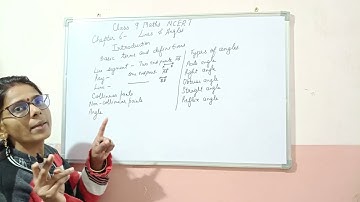 Class 9 Maths NCERT
Chapter 6- Lines & Angles
Introduction
Basic terms and definitions
Line segment - Two end points AB
Ray - one end point AB
Line - AB
Collinear points
Non-collinear points
Angle
Types of angles
Acute angle
Right angle
Obtuse angle
Straight angle
Reflex angle